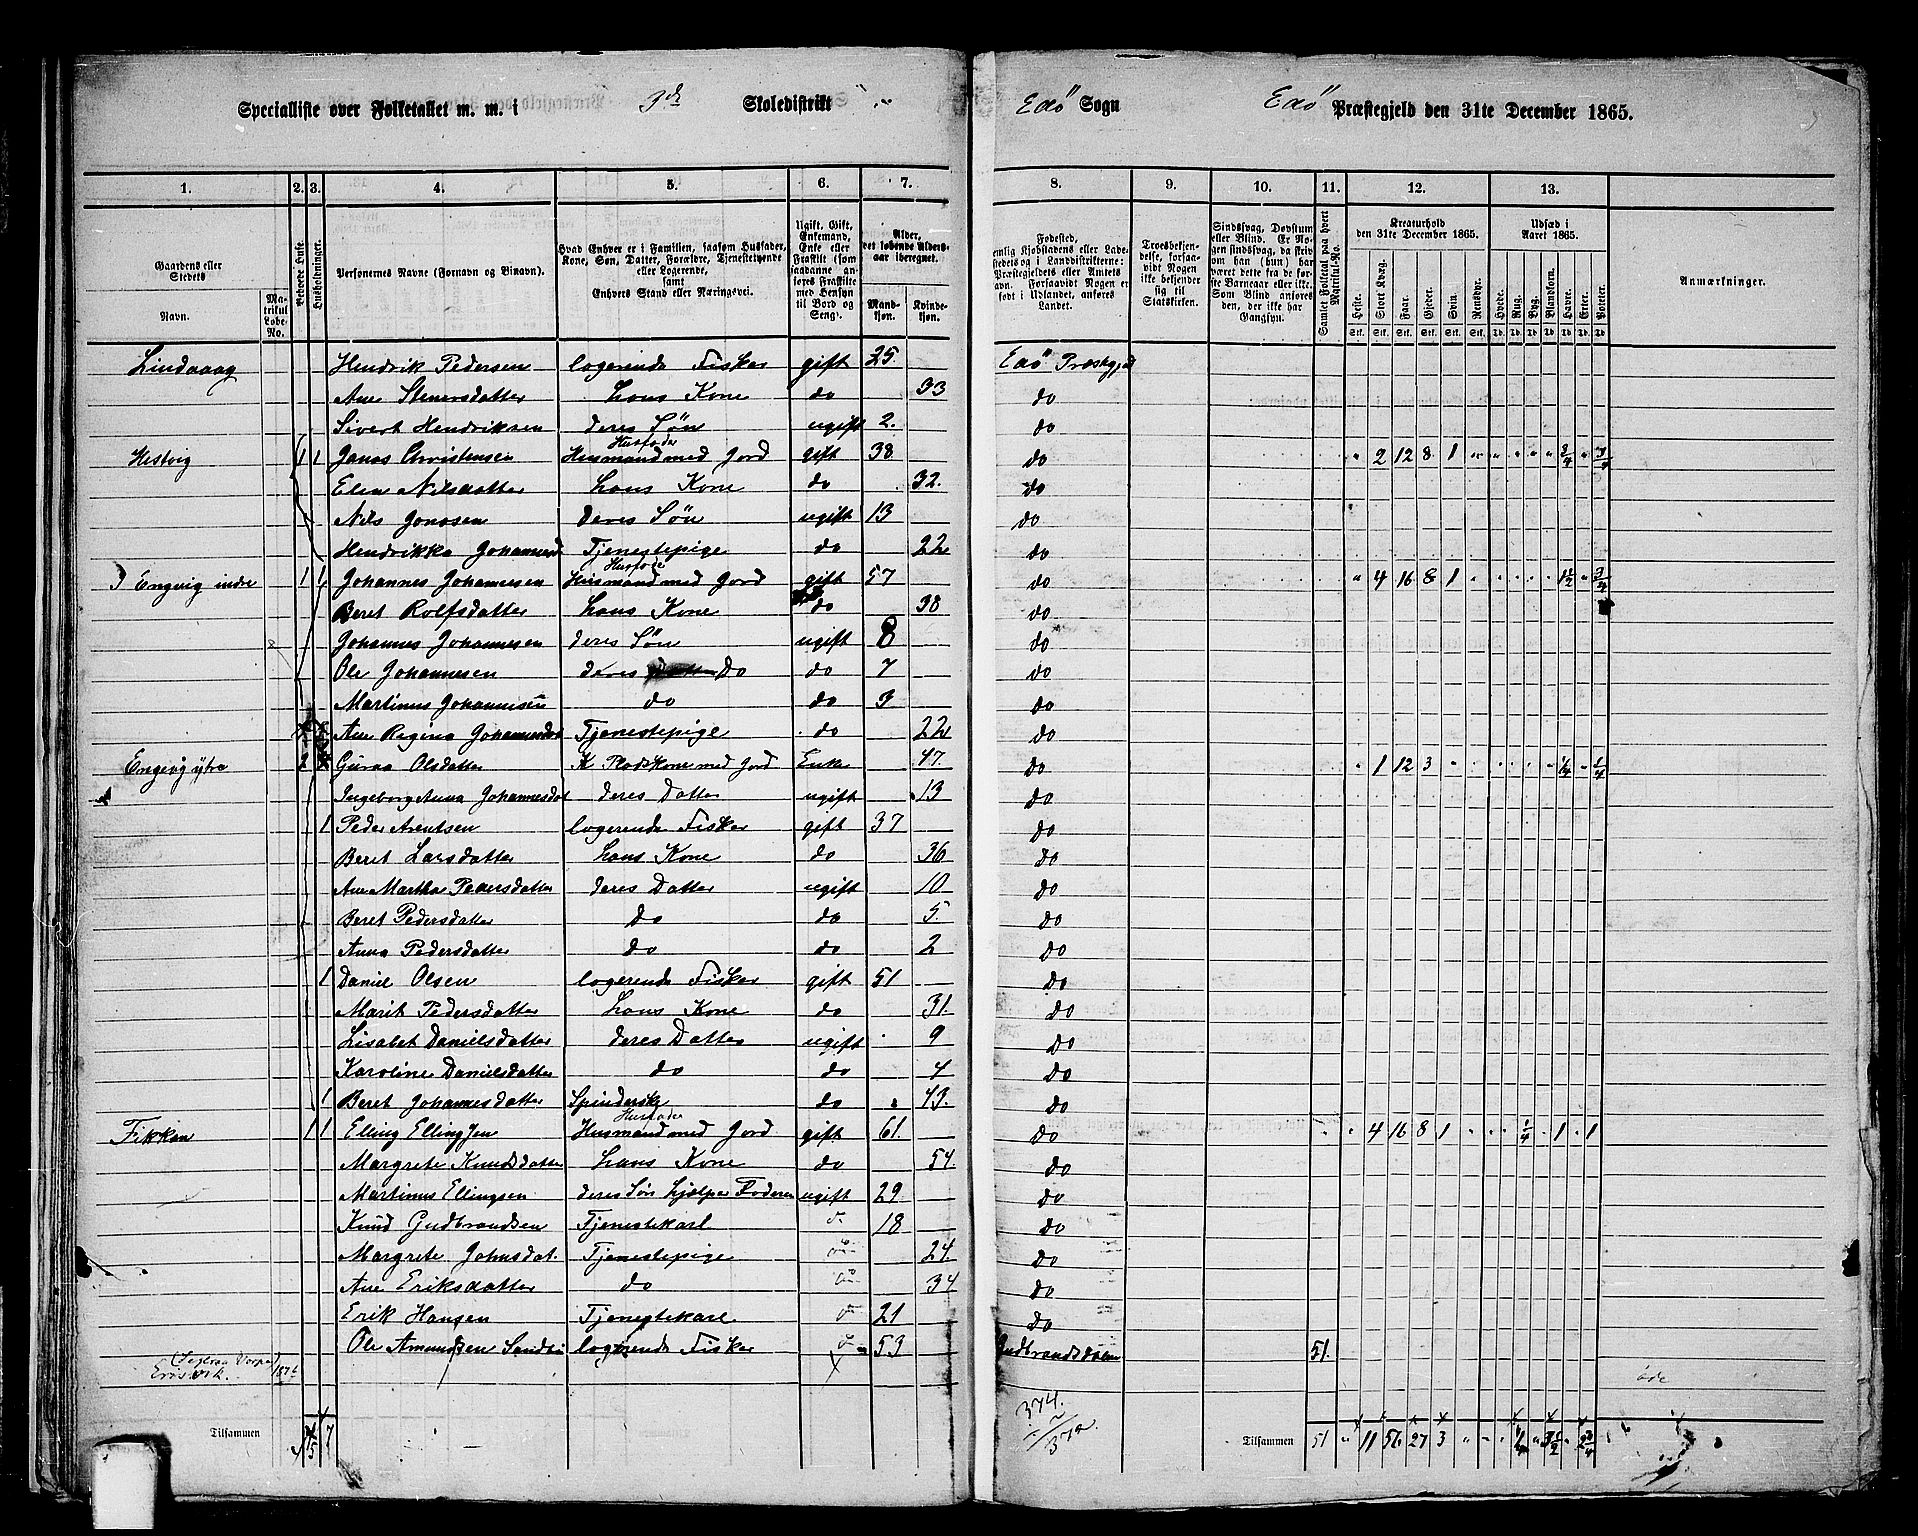 Specialliste over Folketallet m. m. i 3de Skoledistrikt Edø Sogn Edø Præstegjeld den 31te December 1865.
1. 2. 3. 4. 5. 6. 7. 8. 9. 10. 11. 12. 13.
Gaardens eller Stedets Navn. Matrikul Løbe-No. Beboede Huse. Husholdninger. Personernes Navne (Fornavn og Binavn). Hvad Enhver er i Familien, saasom Husfader, Kone, Søn, Datter, Forældre, Tjenestetyende eller Logerende, samt Enhvers Stand eller Næringsvei. Ugift, Gift, Enkemand, Enke eller Fraskilt (som saadanne anføres Fraskilte med Hensyn til Bord og Seng). Alder, det løbende Aldersaar iberegnet. Mandkjøn. Kvindekjøn.
Fødested, nemlig Kjøbstadens eller Ladestedets og i Landdistrikterne: Præstegjeldets eller Amtets Navn. Forsaavidt Nogen er født i Udlandet, anføres Landet. Troesbekjendelse, forsaavidt Nogen ikke bekjender sig til Statskirken. Sindssvag, Døvstum eller Blind. Er Nogen sindssvag, da skrives om han (hun) har været dette fra de første Barneaar eller ikke. Som Blind anføres den, der ikke har Gangsyn. Samlet Folketal paa hvert Matrikul-No. Kreaturhold den 31te December 1865. Heste. Stort Kvæg. Faar. Gjeder. Svin. Rensdyr. Udsæd i Aaret 1865. Hvede. Rug. Byg. Blandkorn. Havre. Erter. Poteter. Anmærkninger.
Lindvaag Hendrik Pedersen logerende Fisker gift 25. Edø Præstegjeld
Ane Stenersdatter hans Kone do 33 do
Sivert Hendriksen deres Søn ugift 2. do
Hestvig 1 1 Jonas Christensen Husfader Husmand med Jord gift 38 do " 2 12 8 1 " " " " " 3/4 " 3/4
Elen Nilsdatter hans Kone do 32. do
Nils Jonasen deres Søn ugift 13 do
Hendrikka Johannesd Tjenestepige do 22 do
Engvig indre 1 1 Johannes Johannesen Husfader Husmand med Jord gift 57 do " 4 16 8 1 " " " " " 1 1/2 " 3/4
Beret Rolfsdatter hans Kone do 38 do
Johannes Johannesen deres Søn ugift 8 do
Ole Johannesen deres Do do 7 do
Martinus Johannesen do do 3 do
Ane Regina Johannesdat Tjenestepige do 22 do
Engevig ytre 2 Guraa Olsdatter K Pladskone med Jord Enke 47. do " 1 12 3 " " " " " " 1/4 " 1/4
Ingeborg Anna Johannesdat deres Datter ugift 13 do
1 Peder Arentsen logerende Fisker gift 37 do
Beret Larsdatter hans Kone do 36 do
Ane Martha Pedersdatter deres Datter ugift 10 do
Beret Pedersdatter do do 5. do
Anna Pedersdatter do do 2 do
1 Daniel Olsen logerende Fisker gift 51 do
Marit Pedersdatter hans Kone do 31. do
Lisabet Danielsdatter deres Datter ugift 9 do
Karoline Danielsdatter do do 4 do
1 Beret Johannesdatter Spinderske do 43. do
Fikkan 1 1 Elling Ellingsen Husfader Husmand med Jord gift 61. do " 4 16 8 1 " " " 1/4 " 1 " 1
Margrete Knudsdatter hans Kone do 54. do
Martinus Ellingsen deres Søn hjælper Faderen ugift 29 do
Knud Gudbrandsen Tjenestekarl 18 do
Margrete Johnsdat. Tjenestepige 24. do
Ane Eriksdatter do 34 do
Erik Hansen Tjenestekarl 21 do
Ole Amundsen logerende Fisker 53 Gudbrandsdalen 51.
1876 øde
374.
372.
Tilsammen 5 7 Tilsammen 51 " 11 56 27 3 " " 1/4 " 3 1/2 " 2 3/4